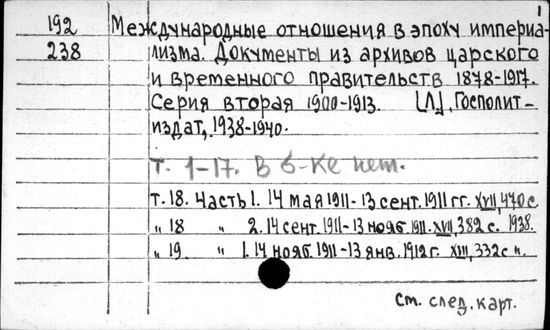 1
192 Международные отношения в эпоху империа-
238 лизма. Документы из архивов царского
и временного правительств 1878-1917.
Серия вторая 1900-1913. [Л.], Госполит-
издат, 1938-1940.
т. 1-17. В б-ке нет.
т. 18. Часть 1. 14 мая 1911-13 сент. 1911 гг. XVII, 470 с.
„ 18 „ 2. 14 сент. 1911-13 нояб. 1911. XVII, 382 с. 1938.
„ 19 „ 1. 14 нояб. 1911-13 янв. 1912 г. XIII, 332 с „.
См. след. карт.